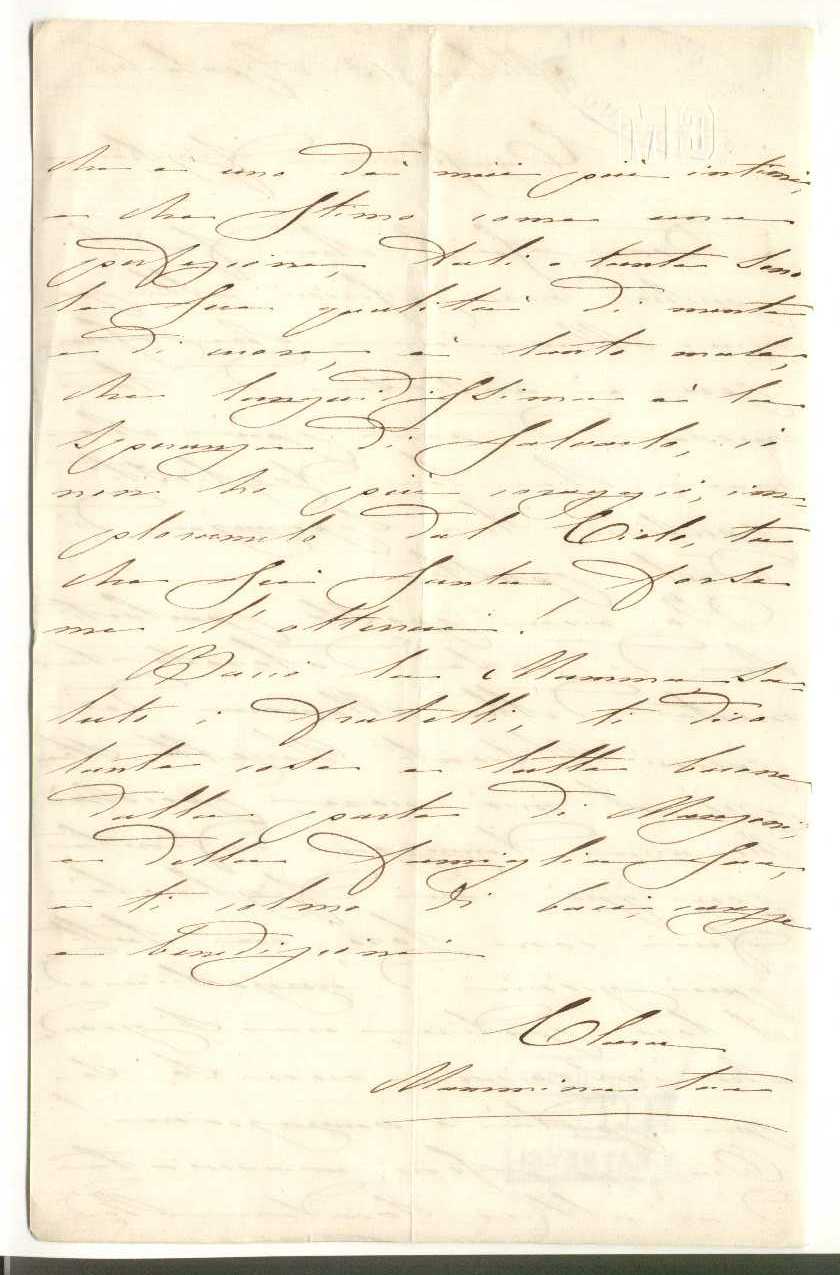 che è uno dei miei più intimi,
e che stimo come una
perfezione, tali e tante sono
le Sue qualità di mente
e di cuore, è tanto male,
che languidissima è la
speranza di Salvarlo, io
non ho più coraggio, im-
plorarmelo dal Cielo, tu
che Sei Santa, forse
me l'otterrai!
Bacio la Mamma, sa-
luto i fratelli, ti dico
tante cose e tutte buone
dalla parte di Manzoni,
e della famiglia Sua,
e ti colmo di baci,
e benedizioni
Clara
Mammina tua